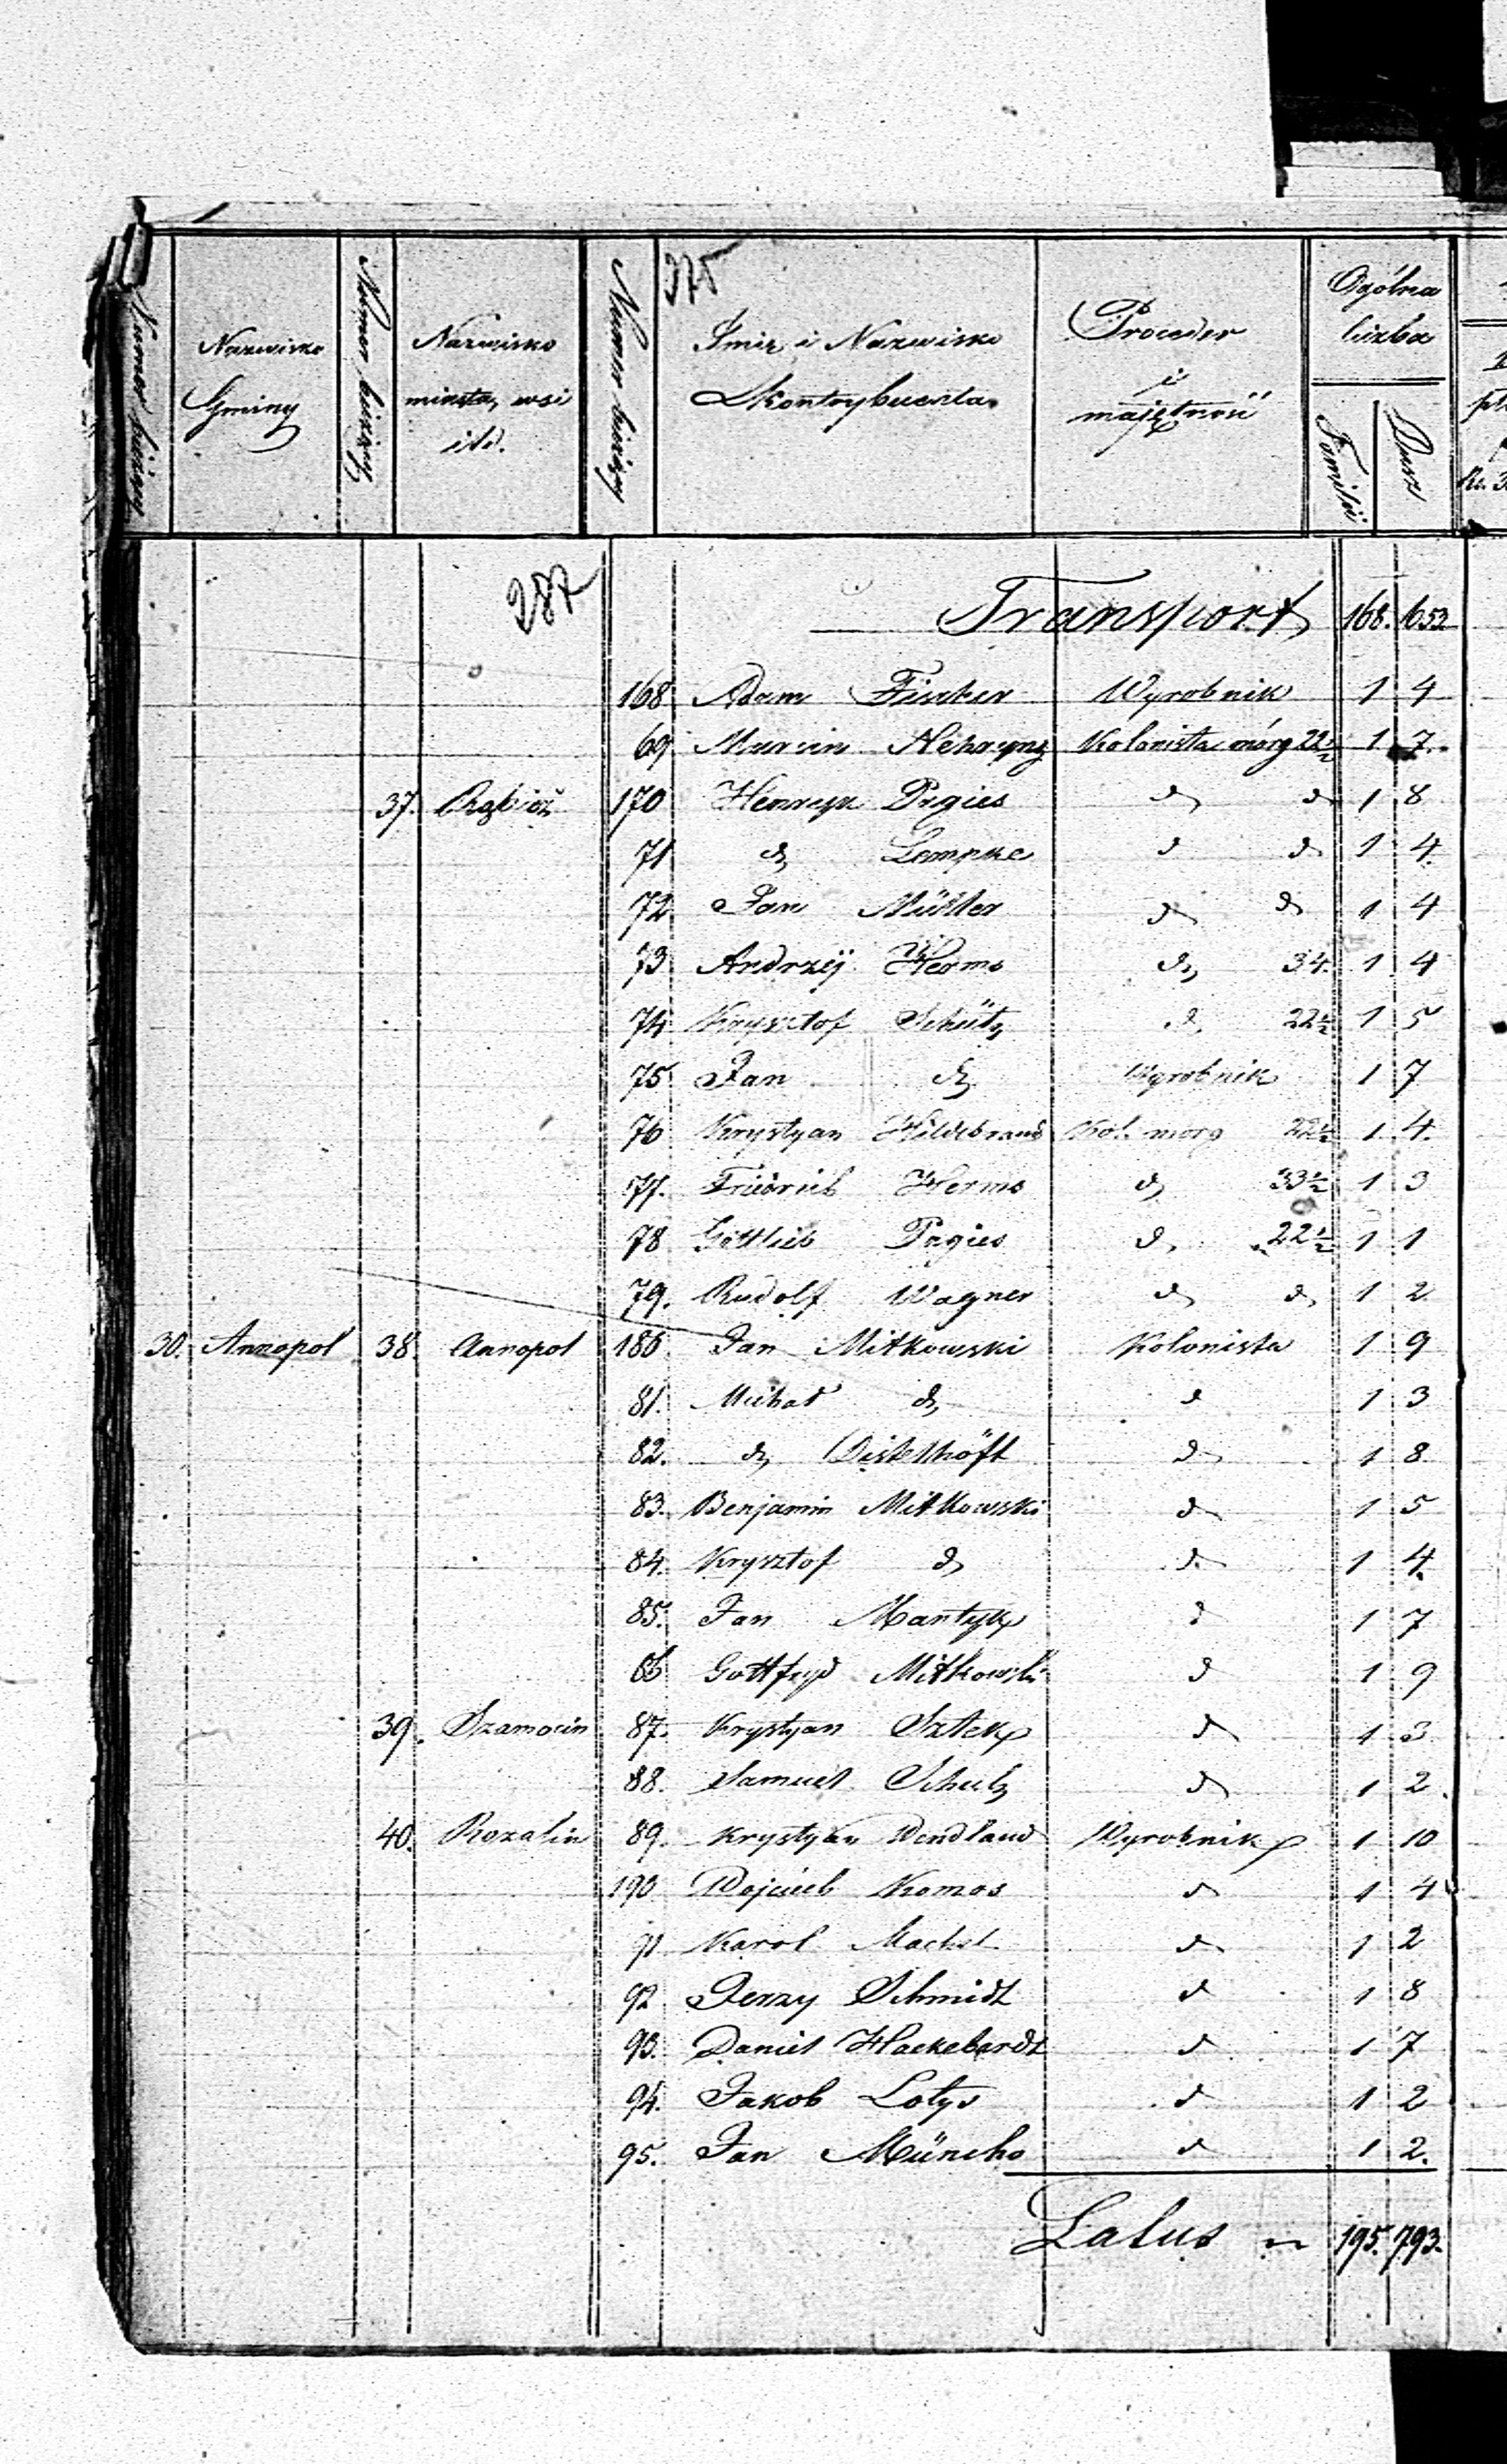 375
Numer bieżący
Nazwisko Gminy
Numer bieżący
Nazwisko miasta, wsi itd.
Numer bieżący
Imię i Nazwisko Kontrybuenta
Proceder i majętność
Ogólna liczba
Familii
Dusz
287
Transport 168. 653
168 Adam Fischer Wyrobnik 1 4
69 Marcin Nehryng Kolonista mórg 22½ 1 7.
37. 170 Henryk Prgies d d 1 8
71 d Lempke d d 1 4.
72 Jan Müller d d 1 4
73 Andrzéj Herms d 34. 1 4
74 Krysztof Schütz d 22½ 1 5
75 Jan d Wyrobnik 1 7
76 Krystyan Hildebrand Kol. morg 22½ 1 4.
77. Friedrich Herms d 33½ 1 3
78 Gottlieb Prgies d 22½ 1 1
79. Rudolf Wagner d d 1 2
30. Annopol 38. Annopol 180 Jan Mitkowski Kolonista 1 9
81. Michał d d 1 3
82. d Distelhöft d 1 8
83. Benjamin Mitkowski d 1 5
84. Krysztof d d 1 4.
85. Jan Mantyk d 1 7
86 Gottfryd Mitkowski d 1 9
39. Szamocin 87. Krystyan Sztek d 1 3
88. Samuel Schulz d 1 2
40. Rozalin 89. Krystyan Wendland Wyrobnik 1 10
190 Wojciech Komos d 1 4
91 Karol Machel d 1 2
92 Jerzy Schmidt d 1 8
93. Daniel Hackebardt d 1 7
94. Jakob Lotys d 1 2
95. Jan Müncho d 1 2.
Latus 195. 793.